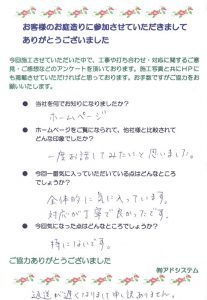 お客様のお庭造りに参加させていただきまして
ありがとうございました
今回施工させていただいた中で、工事や打ち合わせ・対応に関するご意
見・ご感想などのアンケートを頂いております。施工写真と共にHPに
も掲載させていただければと思っております。お手数ですがご協力をお
願いいたします。
● 当社を何でお知りになりましたか?
ホームページ
● ホームページをご覧になられて、他社様と比較されて
どんな印象でしたか?
一度お話してみたいと思いました。
● 今回一番気に入っていただいている点はどんなところ
でしょうか?
全体的に気に入っています。
対応が丁寧で良かったです。
● 今回気になった点はどんなところでしょうか?
特にないです。
ご協力ありがとうございました
㈱アドシステム
返送が遅くなりまして申し訳ありません。